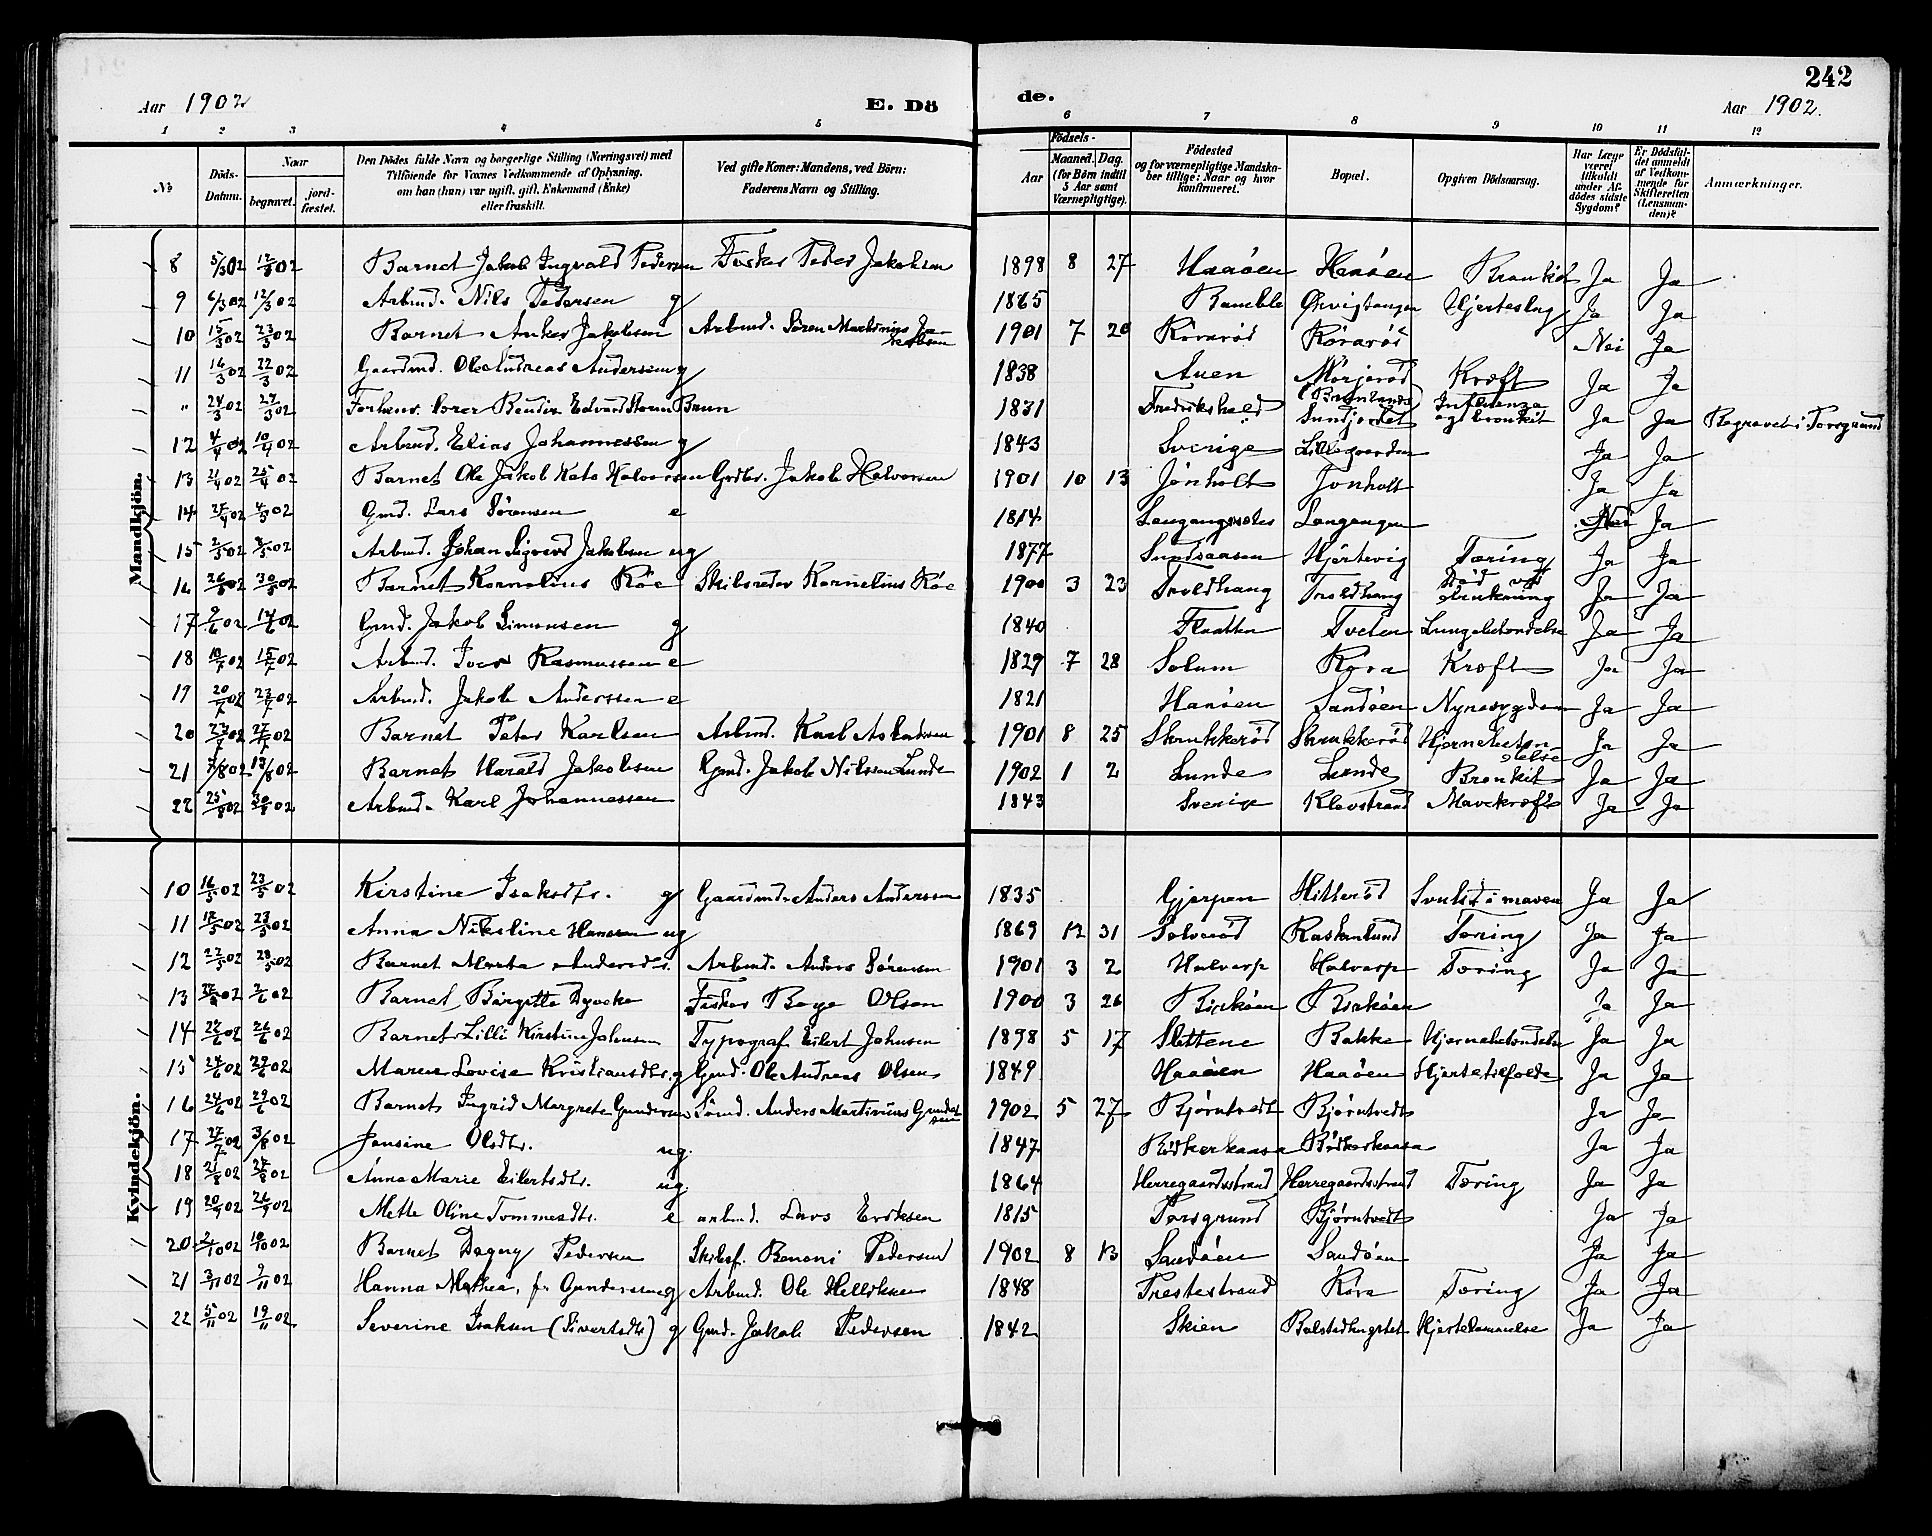 242
Aar 1902
E. Dö
de.
Aar 1902.
1 2 3 4 5 6 7 8 9 10 11 12
№
Döds-Datum.
Naar
begravet.
jord-fæstet.
Den Dödes fulde Navn og borgerlige Stilling (Næringsvei) med
Tilföiende for Voxnes Vedkommende af Oplysning,
om han (hun) var ugift, gift, Enkemand (Enke)
eller fraskilt.
Ved gifte Koner: Mandens, ved Börn:
Faderens Navn og Stilling.
Födsels-
Aar
Maaned. Dag.
(for Börn indtil
5 Aar samt
Værnepligtige).
Födested
og for værnepligtige Mandska-
ber tillige: Naar og hvor
konfirmeret.
Bopæl.
Opgiven Dödsaarsag.
Har Læge
været
tilkaldt
under Af-
dödes sidste
Sygdom?
Er Dödsfal-
det anmeldt
af Vedkom-
mende for
Skifteretten
(Lensman-
den)?
Anmærkninger.
Mandkjön.
8 5/3 02 12/3 02 Barnet Jakob Ingvald Pedersen Fisker Peder Jakobsen 1898 8 27 Haaöen Haaöen Bronkit Ja Ja
9 6/3 02 12/3 02 Arbmd. Nils Pedersen g 1865 Bamble Ørvigtangen Hjerteslag Ja Ja
10 15/3 02 23/3 02 Barnet Anker Jakobsen Arbmd. Sören Martinius Ja-
kobsen 1901 7 20 Röraröd Röraröd Nei Ja
11 16/3 02 22/3 02 Gaardmd. Ole Andreas Andersen g 1838 Auen Mörjeröd Kræft Ja Ja
" 24/3 02 27/3 02 Edvard Storm Brun 1831 Fredrikshald Sundjordet Influenza
og bronkit Ja Ja Begravet i Porsgrund
12 4/4 02 10/4 02 Arbmd. Elias Johannessen g 1843 Sverige Lillegaarden Ja Ja
13 21/4 02 25/4 02 Barnet Ole Jakob Kato Halvorsen Grdbr. Jakob Halvorsen 1901 10 13 Jönholt Jönholt Ja Ja
14 27/4 02 4/5 02 Gmd. Lars Sörensen e 1814 Langangen Nei Ja
15 2/5 02 8/5 02 Arbmd. Johan Sigvard Jakobsen ug 1877 Sundsaasen Hjertevig Tæring Ja Ja
16 26/5 02 30/5 02 Barnet Kornelius Röe Skibsreder Kornelius Röe 1900 3 23 Troldhaug Troldhaug Död ved
drukning Ja Ja
17 9/6 02 14/6 02 Gmd. Jakob Simonsen g 1840 Flaatten Tveten Lungebetændelse Ja Ja
18 10/7 02 15/7 02 Arbmd. Iver Rasmussen e 1829 7 28 Solum Röra Kræft Ja Ja
19 20/7 02 23/7 02 Arbmd. Jakob Anderssen e 1821 Haaöen Sandöen Nyresygdom Ja Ja
20 23/7 02 27/7 02 Barnet Peter Karlsen Arbmd. Karl 1901 8 25 Skrukkeröd Skrukkeröd Hjernebetæn-
delse Ja Ja
21 7/8 02 13/8 02 Barnet Harald Jakobsen Gmd. Jakob Nilssen Lunde 1902 1 2 Lunde Lunde Bronkit Ja Ja
22 25/8 02 30/8 02 Arbmd. Karl Johannessen 1843 Sverige Klevstrand Mavekræft Ja Ja
Kvindekjön.
10 16/5 02 23/5 02 Kirstine Isaksdtr. g Gaardmd. Anders Andersen 1835 Gjerpen Hitteröd i maven Ja Ja
11 18/5 02 23/5 02 Anna Nikoline Hansen ug 1869 12 31 Solveröd Raskenlund Tæring Ja Ja
12 22/5 02 28/5 02 Barnet Marta Andersdtr. Arbmd. Anders Sörensen 1901 3 2 Halvarp Halvarp Tæring Ja Ja
13 28/5 02 2/6 02 Barnet Birgitte Dyveke Fisker Boye Olsen 1900 3 26 Birköen Birköen Ja Ja
14 22/6 02 26/6 02 Barnet Lilli Kirstine Johnsen Typograf Eilert Johnsen 1898 5 17 Slettene Bakke Hjernebetændelse Ja Ja
15 24/6 02 29/6 02 Maren Lovise Kristiansdtr. g Gmd. Ole Andreas Olsen 1849 Haaöen Haaöen Hjertetilfælde Ja Ja
16 24/6 02 29/6 02 Barnet Ingrid Margrete Gundersen Sömd. Anders Martinius Gunder
sen 1902 5 27 Björntvedt Björntvedt Ja Ja
17 27/7 02 3/8 02 Jensine Olsdtr. ug. 1847 Bödkerkaasa Bödkerkaasa Ja Ja
18 21/8 02 27/8 02 Anna Marie Eilertsdtr. ug. 1864 Herregaardsstrand Herregaardsstrand Tæring Ja Ja
19 20/9 02 26/9 02 Mette Oline Tommesdtr. e arbmd. Lars Eriksen 1815 Porsgrund Björntvedt Ja Ja
20 2/10 02 10/10 02 Barnet Dagny Pedersen Skibsf. Benoni Pedersen 1902 8 13 Sandöen Sandöen Ja Ja
21 3/11 02 9/11 02 Hanna Mathea, f. Gundersen g Arbmd. Ole Helliksen 1848 Prestestrand Röra Tæring Ja Ja
22 5/11 02 19/11 02 Severine Isaksen (Sivertsdtr) g Gmd. Jakob Pedersen 1842 Skien Bolstadhugstet Hjertelammelse Ja Ja